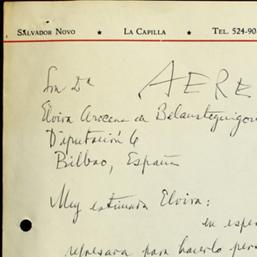 SALVADOR NOVO ★ LA CAPILLA ★ TEL. 524-90
AERE
Sra Dª
Elvira Arocena de Belausteguigoi
Diputación 6
Bilbao, España
Muy estimada Elvira:
en espe
regresara para hacerlo per